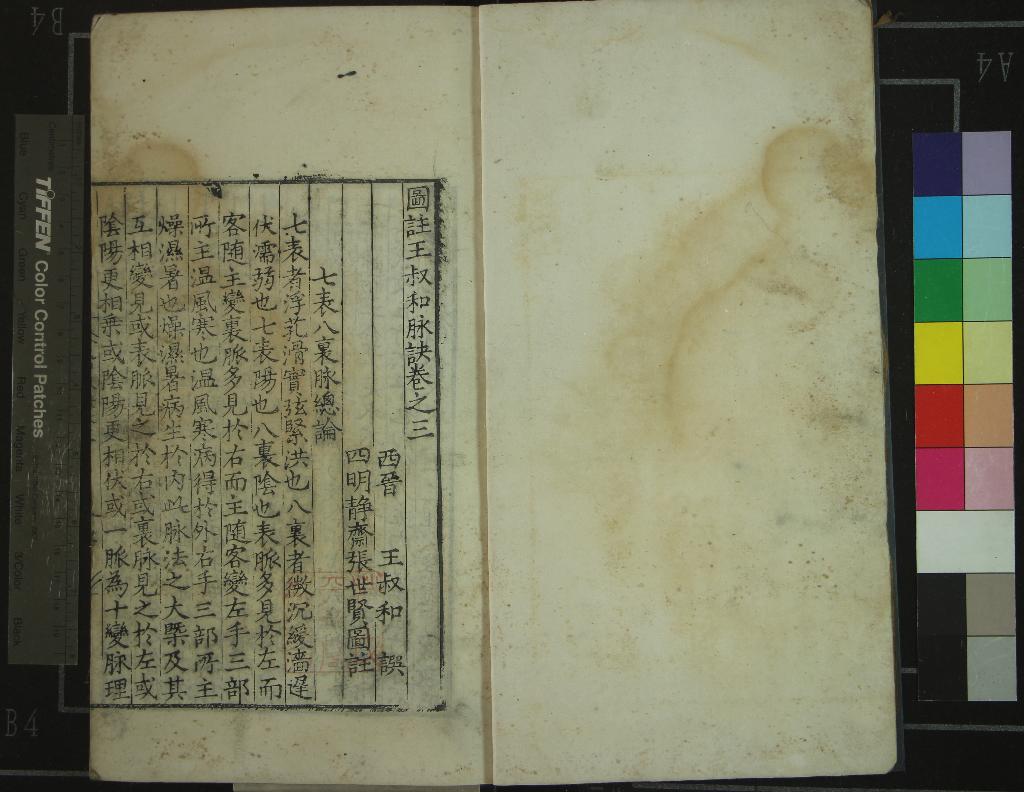 圖註王叔和脉訣卷之三
西晉 王叔和 譔
四明静齋張世賢圖註
七表八裏脉總論
七表者浮芤滑實弦緊洪也八裏者微沉緩濇遲
伏濡弱也七表陽也八裏陰也表脈多見於左而
客随主變裏脈多見於右而主隨客變左手三部
所主温風寒也温風寒病得於外右手三部所主
燥濕暑也燥濕暑病生於内此脉法之大槩及其
互相變見或表脈見之於右或裏脉見之於左或
陰陽更相乘或陰陽更相伏或一脈為十變脉理
TIFFEN Color Control Patches
Blue Cyan Green Yellow Red Magenta White 3/Color Black
Centimetres
B4
A4
B4